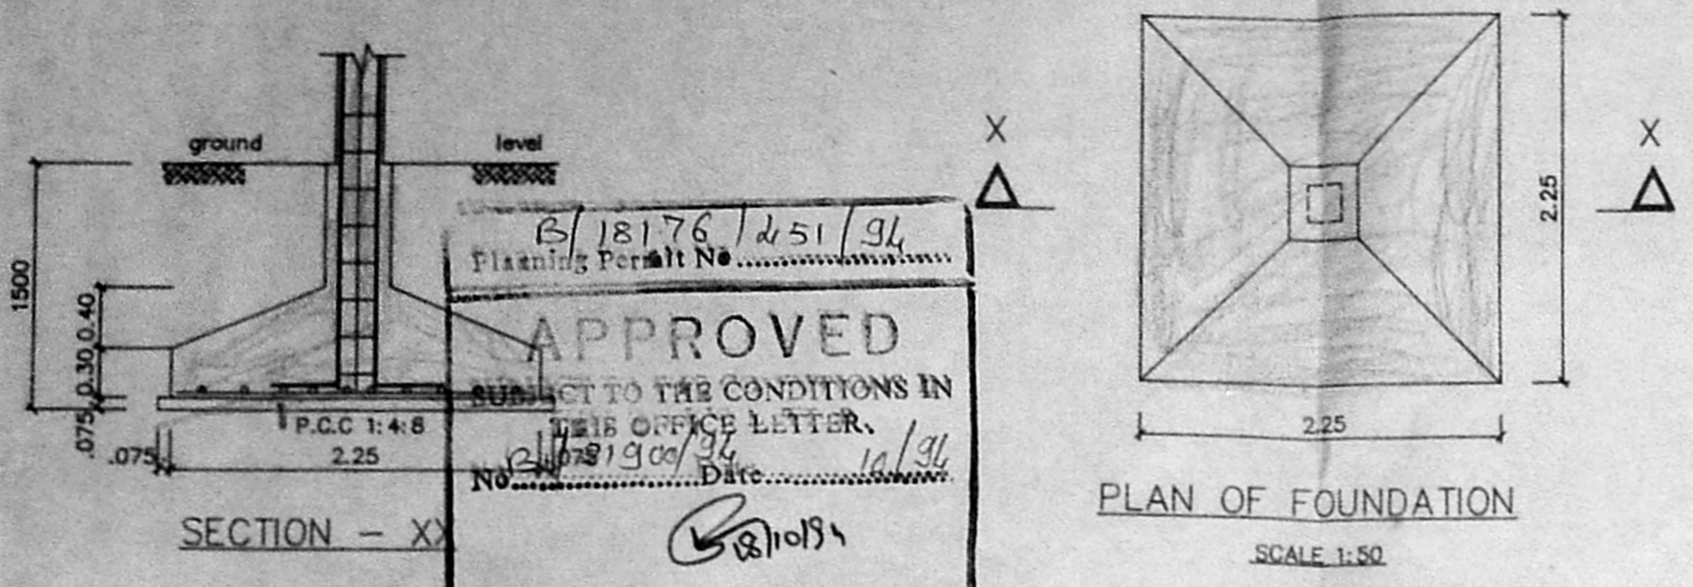 ground level
1500
0.40
0.30
.075
P.C.C 1:4:8
.075
2.25
.075
SECTION - XX
B/18176/451/94
Planning Permit No
APPROVED
SUBJECT TO THE CONDITIONS IN
THIS OFFICE LETTER.
No Date 10/94
18/10/94
X
X
2.25
2.25
PLAN OF FOUNDATION
SCALE 1:50